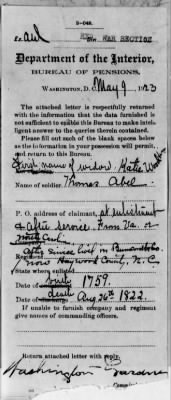 3-048.
WAR SECTION
Department of the Interior,
BUREAU OF PENSIONS,
WASHINGTON, D. C. May 9, 1923
The attached letter is respectfully returned
with the information that the data furnished is
not sufficient to enable this Bureau to make intelli-
gent answer to the queries therein contained.
Please fill out each of the blank spaces below
as the information in your possession will permit,
and return to this Bureau.
First name of widow. Katie
Name of soldier Thomas Abel
P. O. address of claimant, at enlistment
& after service. From Va. or
North
After service lived in
Now Haywood County, N. C.
State where enlisted
Date of birth 1759.
Date of death Aug 26th 1822.
If unable to furnish company and regiment
give names of commanding officers.
Return attached letter with reply.
Washington Gardner